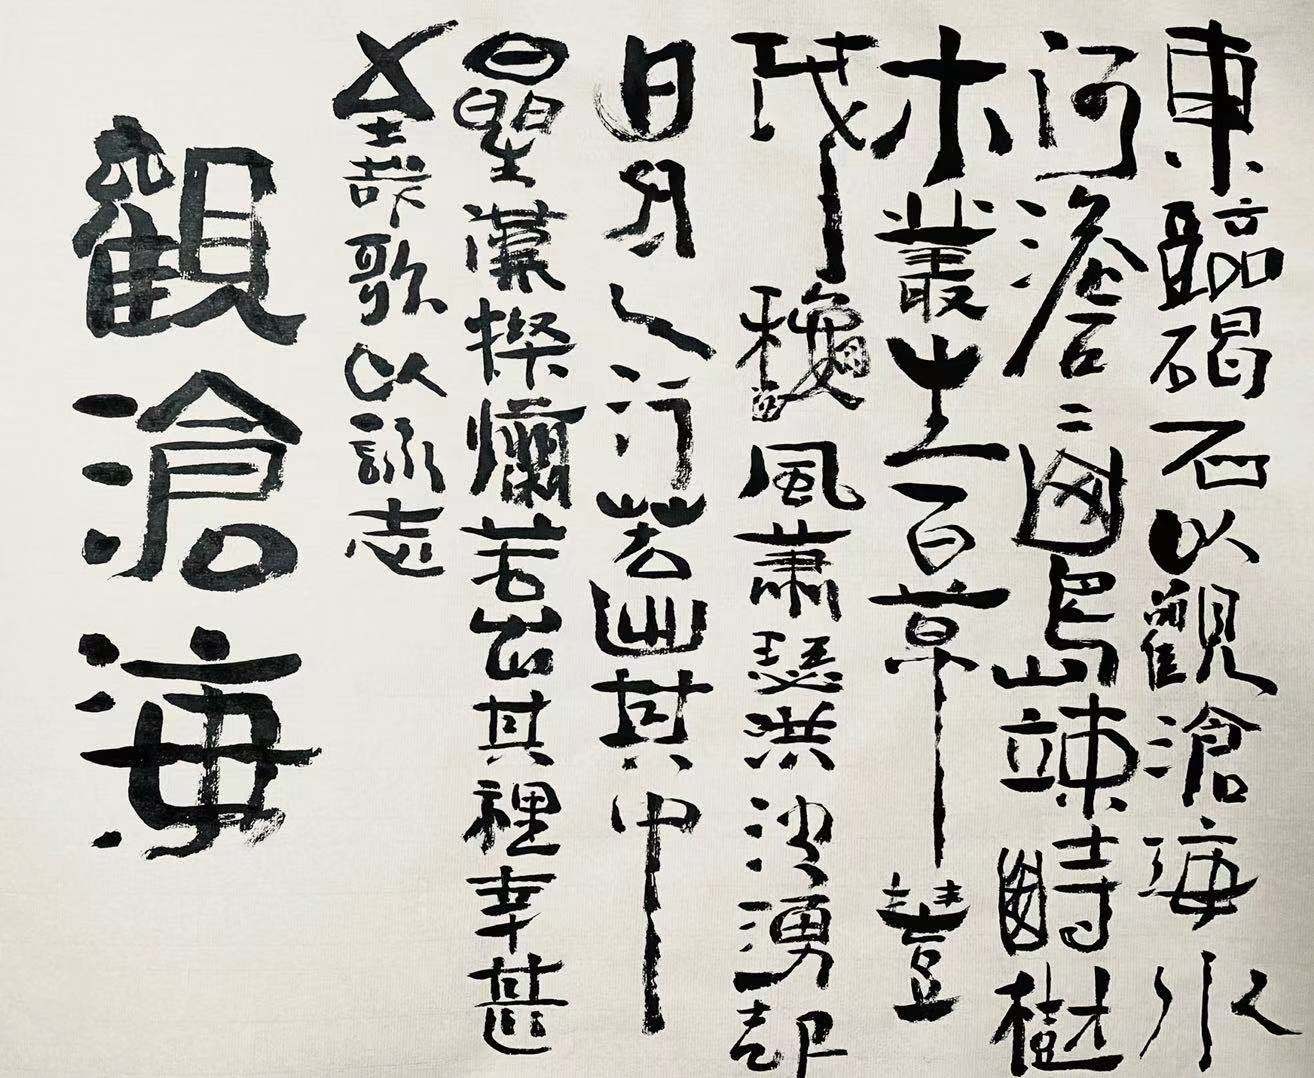 東臨碣石以觀滄海水
河澹〻山島竦峙樹
木叢生百草豐
茂龝風蕭瑟洪波湧起
日月之行若出其中
曐漢燦爛若出其裡幸甚
至哉歌以詠志
觀滄海